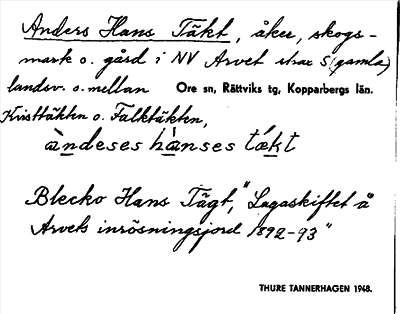 Anders Hans Täkt, åker, skogs-
mark o. gård i NV Arvet strax S (gamla)
landsv. o. mellan Ore sn, Rättviks tg, Kopparbergs län.
Kvisttäkten o. Falktäkten,
àndeses hànses tǽkt
Blecko Hans Tägt, "Lagaskiftet å
Arvets inrösningsjord 1892-93"
THURE TANNERHAGEN 1948.